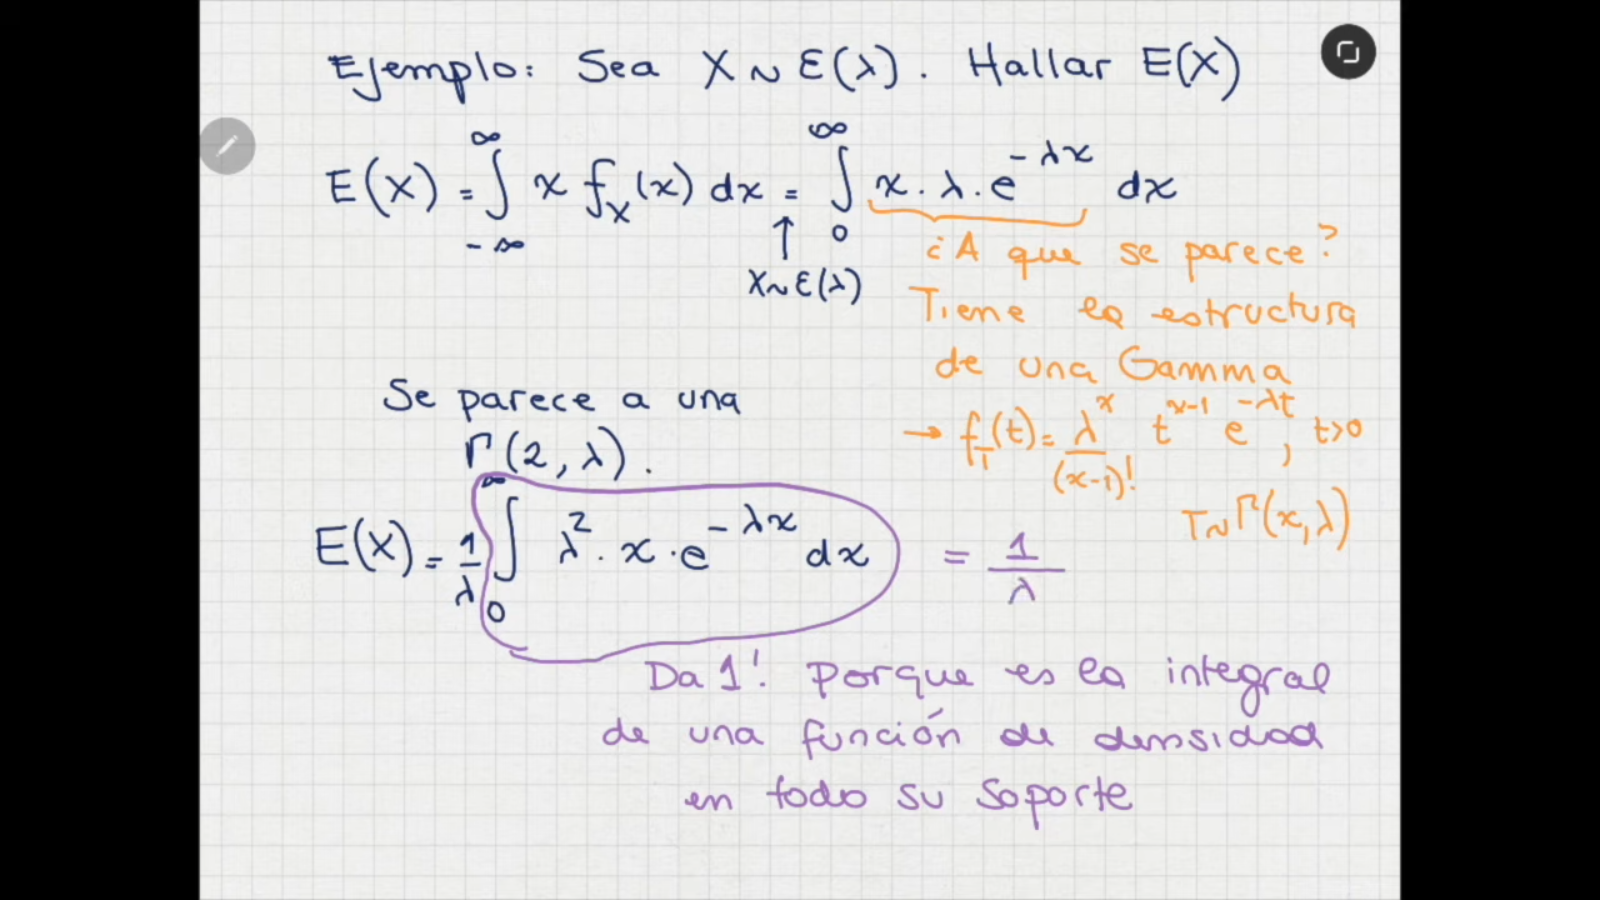 Ejemplo: Sea X ~ ε(λ). Hallar E(X)
E(X) = ∫_{-∞}^{∞} x f_X(x) dx = ∫_0^∞ x · λ · e^{-λx} dx
X ~ ε(λ)
¿A que se parece?
Tiene la estructura
de una Gamma
→ f_T(t) = λ^x/(x-1)! t^{x-1} e^{-λt}, t>0
T ~ Γ(x, λ)
Se parece a una
Γ(2, λ).
E(X) = 1/λ ∫_0^∞ λ² · x · e^{-λx} dx = 1/λ
Da 1! Porque es la integral
de una función de densidad
en todo su soporte